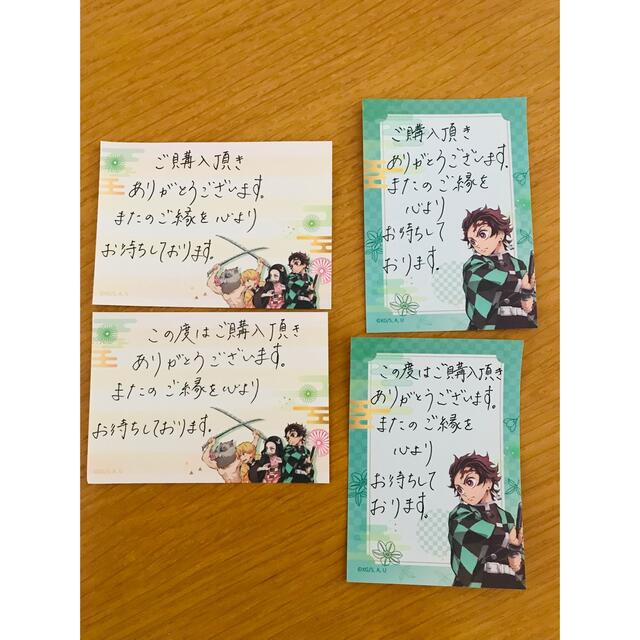 ご購入頂き
ありがとうございます。
またのご縁を心より
お待ちしております。
©KG/S, A, U
この度はご購入頂き
ありがとうございます。
またのご縁を心より
お待ちしております。
©KG/S, A, U
ご購入頂き
ありがとうございます。
またのご縁を
心より
お待ちして
おります。
©KG/S, A, U
この度はご購入頂き
ありがとうございます。
またのご縁を
心より
お待ちして
おります。
©KG/S, A, U